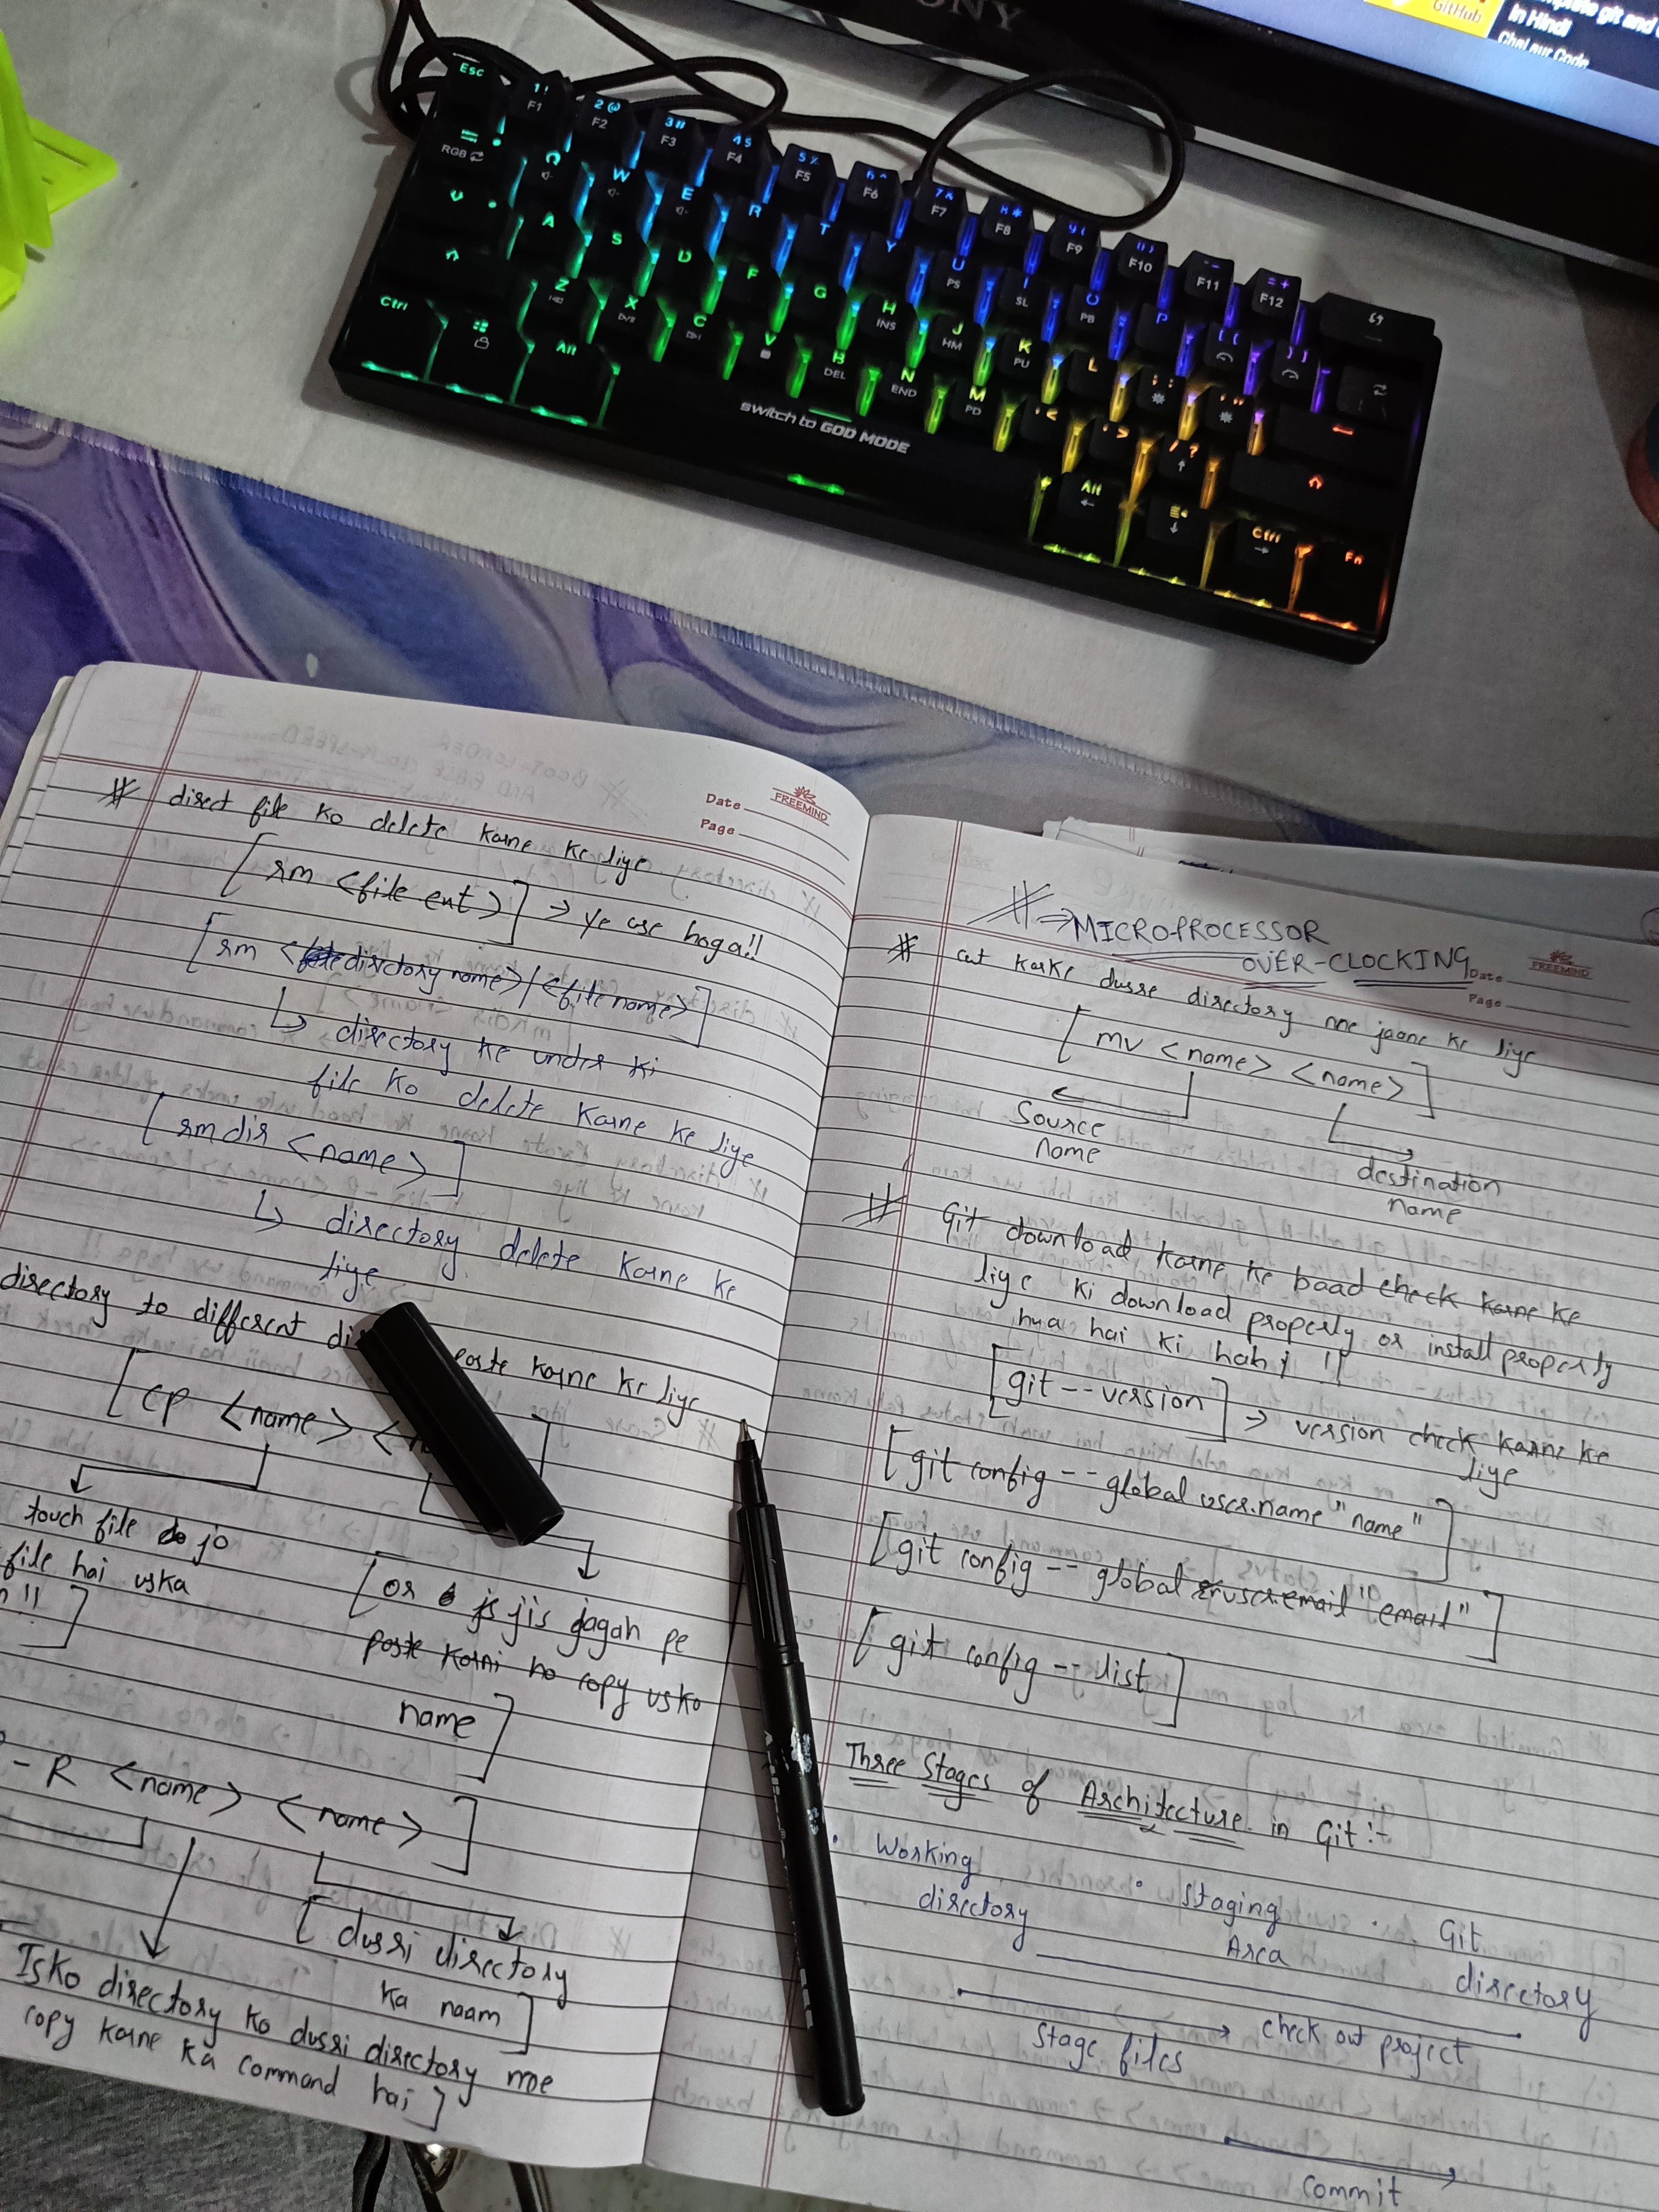 SONY
GitHub
git and
in Hindi
Chai aur Code
Esc
1 ! F1
2 @ F2
3 # F3
4 $ F4
5 % F5
6 ^ F6
7 & F7
8 * F8
9 ( F9
0 ) F10
- _ F11
= + F12
RGB
Q W E R T Y U I O P [ { ] }
PS SL PB
A S D F G H J K L ; : ' "
INS HM PU
Z X C V B N M , < . > / ?
DEL END PD
Ctrl Alt Alt Ctrl Fn
switch to GOD MODE
Date
Page
FREEMIND
# direct file ko delete karne ke liye
[rm <file ext>] → ye use hoga!!
[rm <directory name>/<file name>]
↳ directory ke under ki
file ko delete karne ke liye
[rmdir <name>]
↳ directory delete karne ke
liye
directory to different paste karne ke liye
[cp <name> <
touch file jo
file hai uska
!!]
[or jis jagah pe
paste karni ho copy usko
name]
-R <name> <name>]
[dusri directory
ka naam]
Isko directory ko dusri directory me
copy karne ka command hai]
# → MICROPROCESSOR
OVER-CLOCKING
Date
Page
FREEMIND
# cut karke dusre directory me jaane ke liye
[mv <name> <name>]
Source
name
destination
name
# Git download karne ke baad check karne ke
liye ki download properly or install property
hua hai ki nahi !!
[git --version] → version check karne ke
liye
[git config -- global user.name "name"]
[git config -- global user.email "email"]
[git config -- list]
Three Stages of Architecture in Git :-
• Working
directory
• Staging
Area
• Git
directory
check out project
Stage files
commit